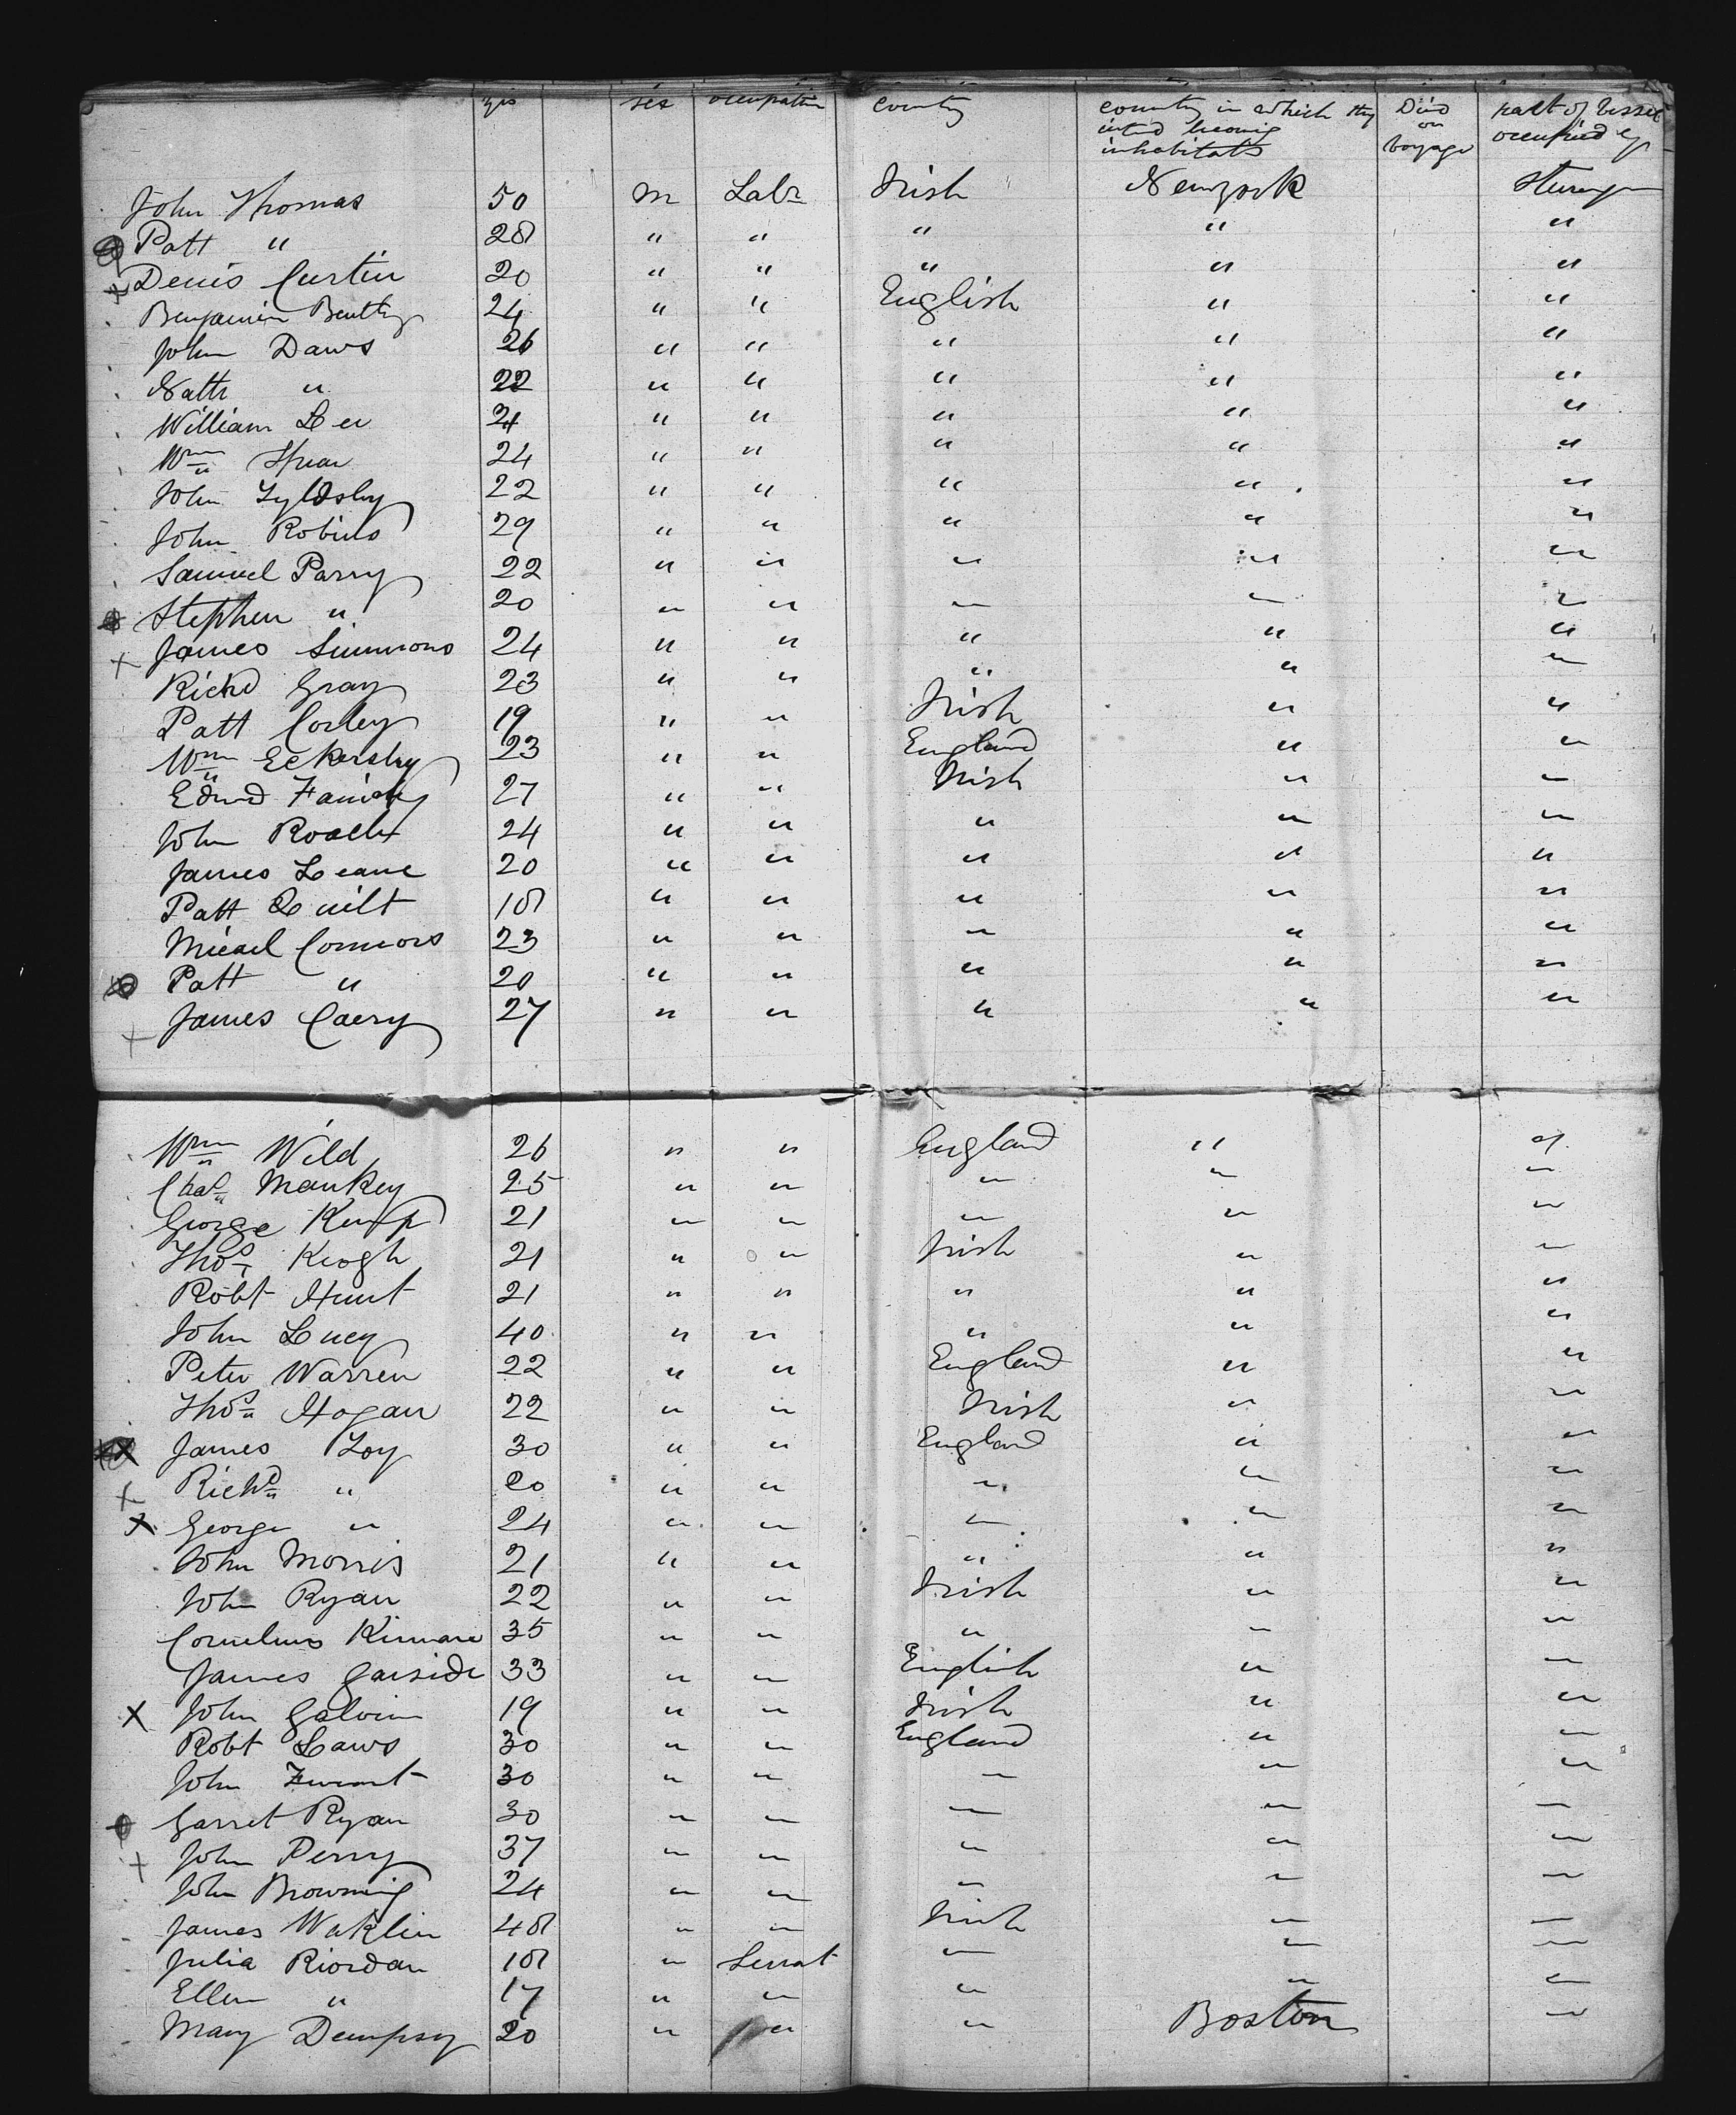 yrs sex occupation country country in which they Died part of Vessel
intend becoming on occupied by
inhabitats Voyage
John Thomas 50 m Labr Irish Newyork Steerage
Patt " 28 " " " " "
Denis Curtin 20 " " " " "
Benjamin Bentley 24 " " English " "
John Daws 26 " " " " "
Nath " 22 " " " " "
William Lee 21 " " " " "
Wm Spear 24 " " " " "
John Tyldsley 22 " " " " "
John Robins 29 " " " " "
Samuel Parry 22 " " " " "
Stephen " 20 " " " " "
x James Simmons 24 " " " " "
Richd Gray 23 " " " " "
Patt Corley 19 " " Irish " "
Wm Eckersley 23 " " England " "
Edwd 27 " " Irish " "
John Roach 24 " " " " "
James Leane 20 " " " " "
Patt Quilt 18 " " " " "
Micael Connors 23 " " " " "
Patt " 20 " " " " "
x James Caery 27 " " " " "
Wm Wild 26 " " England " "
Chas Mankey 25 " " " " "
George Kemp 21 " " " " "
Thos Keogh 21 " " Irish " "
Robt Hunt 21 " " " " "
John Lucy 40 " " " " "
Peter Warren 22 " " England " "
Thos Hogan 22 " " Irish " "
x James Loy 30 " " England " "
x Richd " 20 " " " " "
x George " 24 " " " " "
John Morris 21 " " " " "
John Ryan 22 " " Irish " "
Cornelius Kinnare 35 " " " " "
James Garside 33 " " English " "
x John Galvin 19 " " Irish " "
Robt Laws 30 " " England " "
John 30 " " " " "
Garret Ryan 30 " " " " "
x John Perry 37 " " " " "
John Browning 24 " " " " "
James Waklin 48 " " Irish " "
Julia Riordan 18 " Servat " " "
Ellen " 17 " " " " "
Mary Dempsy 20 " " " Boston "